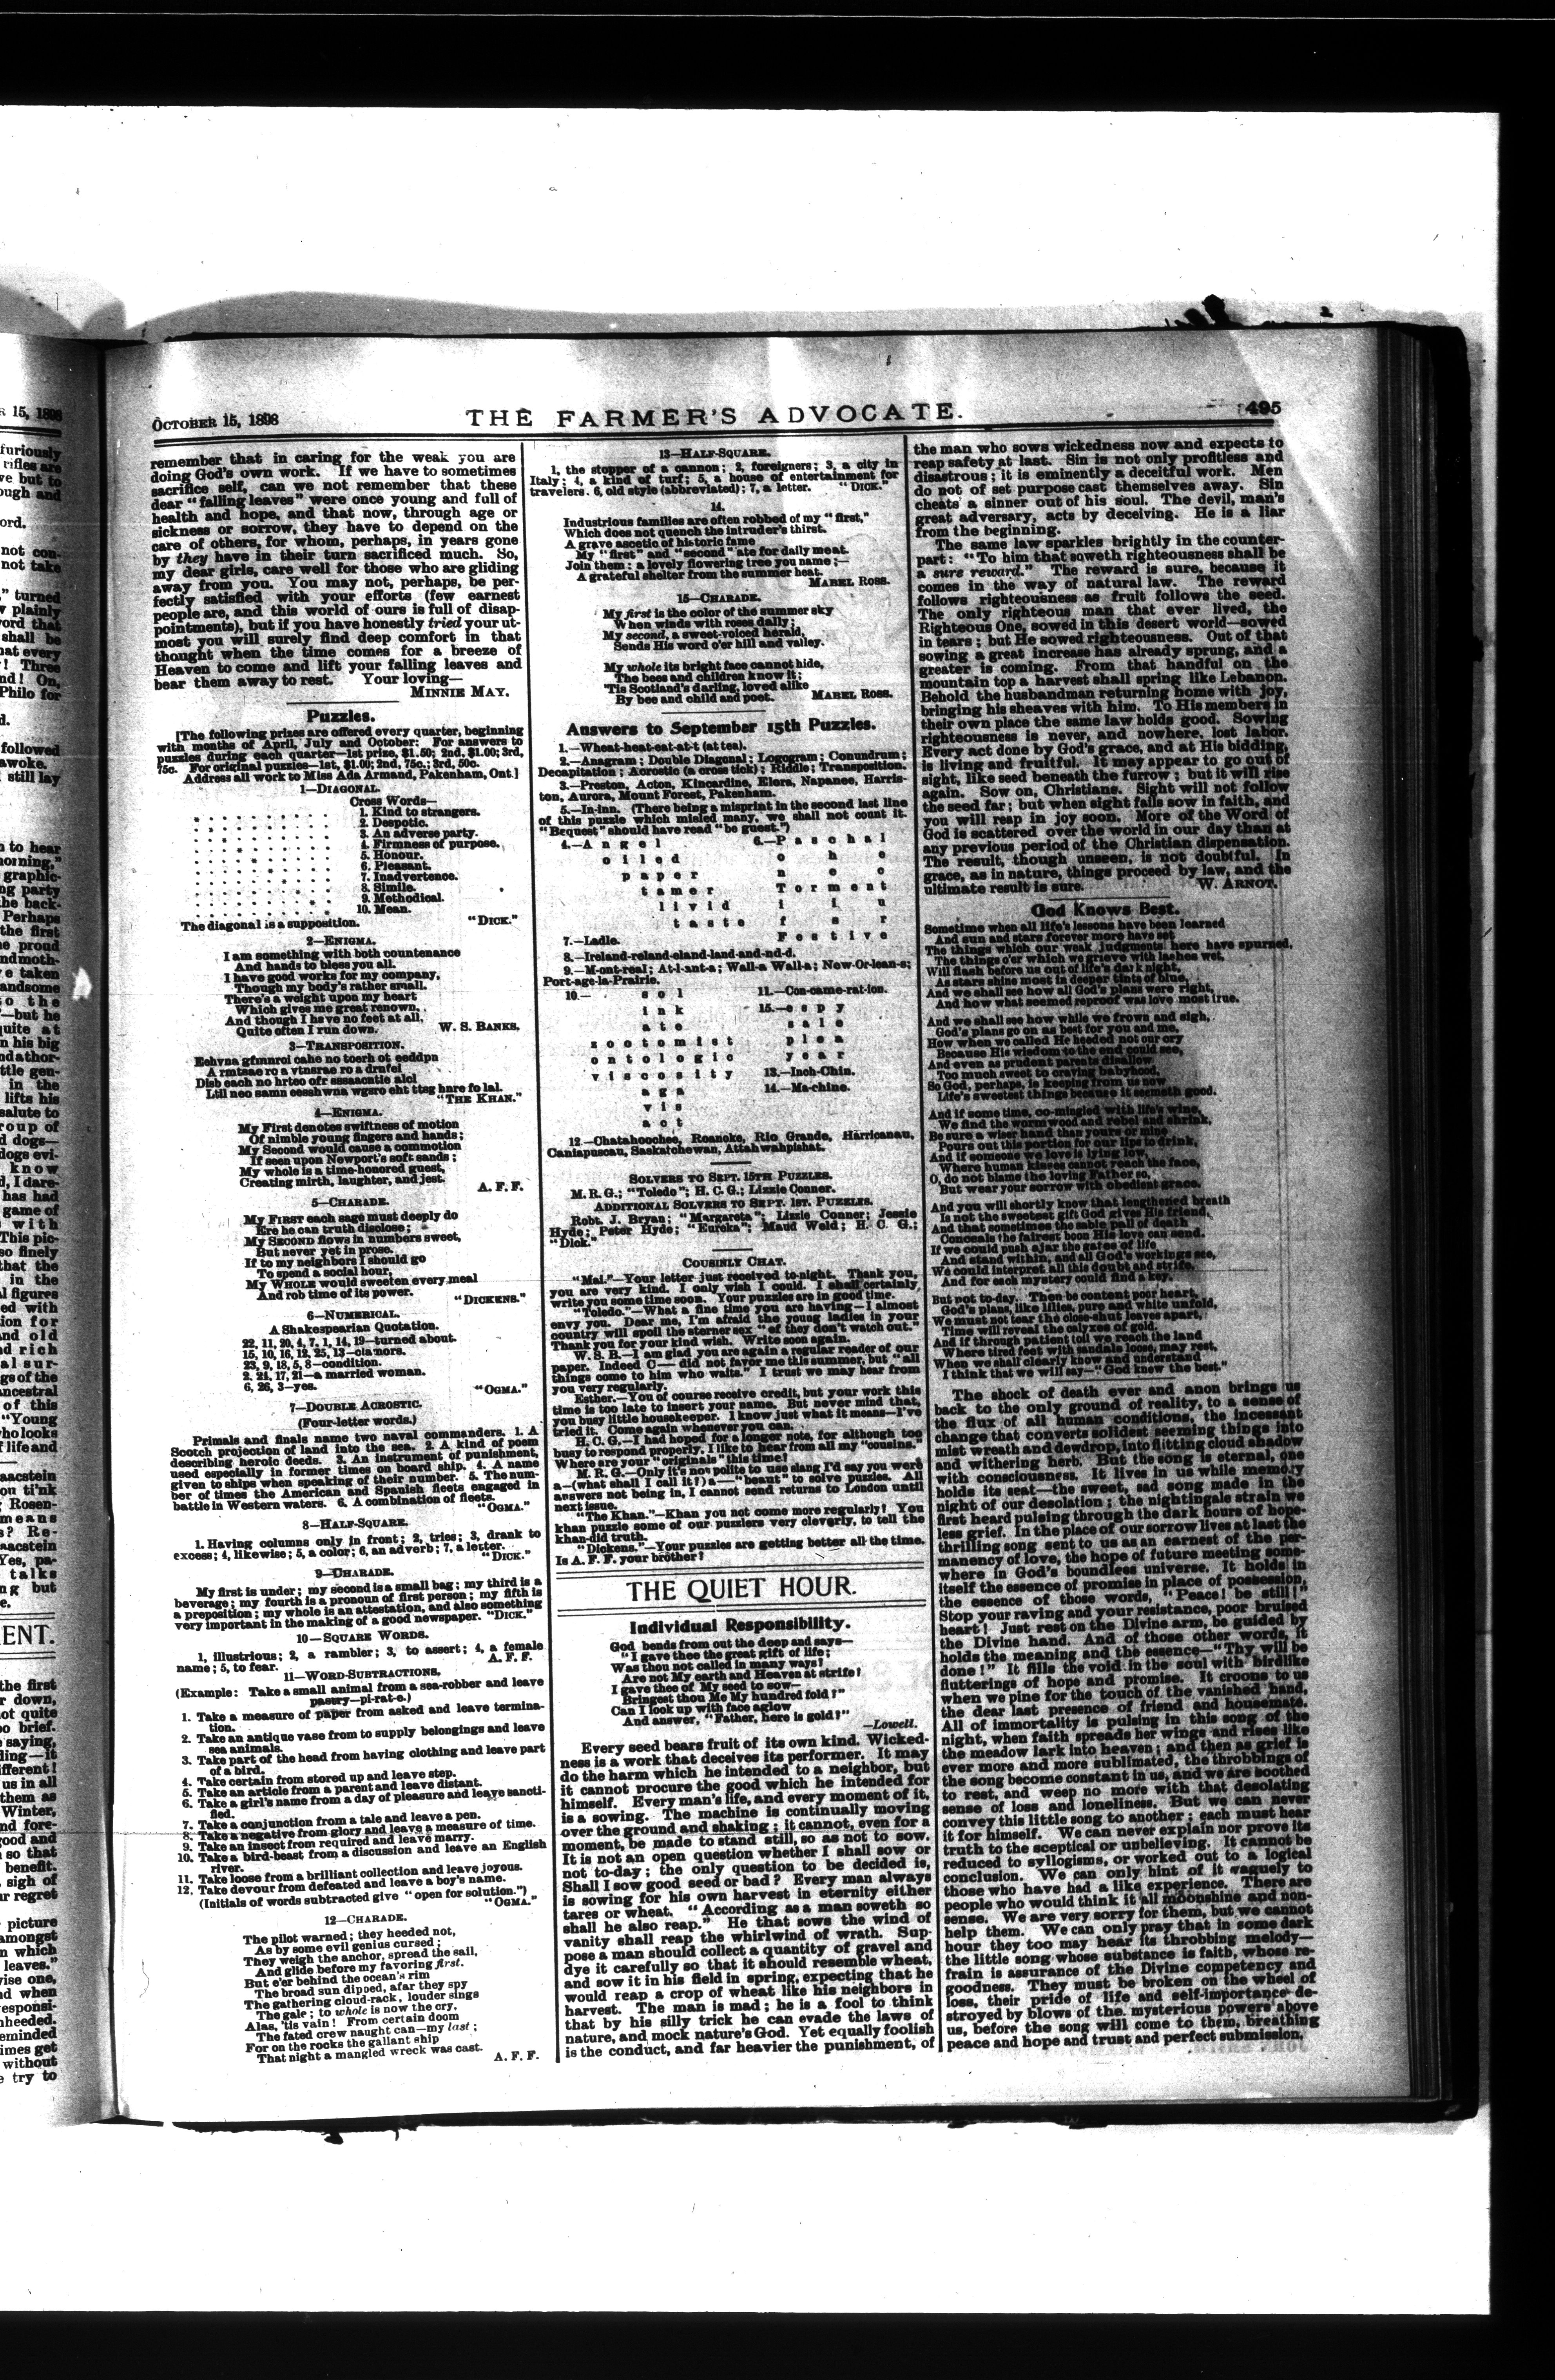 OCTOBER 15, 1898
THE FARMER'S ADVOCATE.
495
remember that in caring for the weak you are
doing God's own work. If we have to sometimes
sacrifice self, can we not remember that these
dear "falling leaves" were once young and full of
health and hope, and that now, through age or
sickness or sorrow, they have to depend on the
care of others, for whom, perhaps, in years gone
by they have in their turn sacrificed much. So,
my dear girls, care well for those who are gliding
away from you. You may not, perhaps, be per-
fectly satisfied with your efforts (few earnest
people are, and this world of ours is full of disap-
pointments), but if you have honestly tried your ut-
most you will surely find deep comfort in that
thought when the time comes for a breeze of
Heaven to come and lift your falling leaves and
bear them away to rest. Your loving—
MINNIE MAY.
Puzzles.
[The following prizes are offered every quarter, beginning
with months of April, July and October: For answers to
puzzles during each quarter—1st prize, $1.50; 2nd, $1.00; 3rd,
75c. For original puzzles—1st, $1.00; 2nd, 75c.; 3rd, 50c.
Address all work to Miss Ada Armand, Pakenham, Ont.]
1—DIAGONAL.
Cross Words—
1. Kind to strangers.
2. Despotic.
3. An adverse party.
4. Firmness of purpose.
5. Honour.
6. Pleasant.
7. Inadvertence.
8. Simile.
9. Methodical.
10. Mean.
The diagonal is a supposition. "DICK."
2—ENIGMA.
I am something with both countenance
And hands to bless you all.
I have good works for my company,
Though my body's rather small.
There's a weight upon my heart
Which gives me great renown.
And though I have no feet at all,
Quite often I run down. W. S. BANKS.
3—TRANSPOSITION.
Eehvna gfmnroi cahe no toerh ot eeddpn
A rmtsae ro a vtnsrae ro a drnfei
Disb each no hrteo ofr sssaacntie alcl
Ltil neo samn eesshwna wgsro eht ttsg hnre fo lal.
"THE KHAN."
4—ENIGMA.
My First denotes swiftness of motion
Of nimble young fingers and hands;
My Second would cause a commotion
If seen upon Newport's soft sands;
My whole is a time-honored guest,
Creating mirth, laughter, and jest.
A. F. F.
5—CHARADE.
My FIRST each sage must deeply do
Ere he can truth disclose;
My SECOND flows in numbers sweet,
But never yet in prose.
If to my neighbors I should go
To spend a social hour,
My WHOLE would sweeten every meal
And rob time of its power.
"DICKENS."
6—NUMERICAL.
A Shakespearian Quotation.
22, 11, 20, 4, 7, 1, 14, 19—turned about.
15, 10, 16, 12, 25, 13—clamors.
23, 9, 18, 5, 8—condition.
2, 24, 17, 21—a married woman.
6, 26, 3—yes. "OGMA."
7—DOUBLE ACROSTIC.
(Four-letter words.)
Primals and finals name two naval commanders. 1. A
Scotch projection of land into the sea. 2. A kind of poem
describing heroic deeds. 3. An instrument of punishment,
used especially in former times on board ship. 4. A name
given to ships when speaking of their number. 5. The num-
ber of times the American and Spanish fleets engaged in
battle in Western waters. 6. A combination of fleets.
"OGMA."
8—HALF-SQUARE.
1. Having columns only in front; 2, tries; 3, drank to
excess; 4, likewise; 5, a color; 6, an adverb; 7, a letter.
"DICK."
9—CHARADE.
My first is under; my second is a small bag; my third is a
beverage; my fourth is a pronoun of first person; my fifth is
a preposition; my whole is an attestation, and also something
very important in the making of a good newspaper. "DICK."
10—SQUARE WORDS.
1, Illustrious; 2, a rambler; 3, to assert; 4, a female
name; 5, to fear. A. F. F.
11—WORD-SUBTRACTIONS.
(Example: Take a small animal from a sea-robber and leave
pastry—pi-rat-e.)
1. Take a measure of paper from asked and leave termina-
tion.
2. Take an antique vase from to supply belongings and leave
sea animals.
3. Take part of the head from having clothing and leave part
of a bird.
4. Take certain from stored up and leave step.
5. Take an article from a parent and leave distant.
6. Take a girl's name from a day of pleasure and leave sancti-
fied.
7. Take a conjunction from a tale and leave a pen.
8. Take a negative from glory and leave a measure of time.
9. Take an insect from required and leave marry.
10. Take a bird-beast from a discussion and leave an English
river.
11. Take loose from a brilliant collection and leave joyous.
12. Take devour from defeated and leave a boy's name.
(Initials of words subtracted give "open for solution.")
"OGMA."
12—CHARADE.
The pilot warned; they heeded not,
As by some evil genius cursed;
They weigh the anchor, spread the sail,
And glide before my favoring first.
But e'er behind the ocean's rim
The broad sun dipped, afar they spy
The gathering cloud-rack, louder sings
The gale; to whole is now the cry.
Alas, 'tis vain! From certain doom
The fated crew naught can—my last;
For on the rocks the gallant ship
That night a mangled wreck was cast.
A. F. F.
13—HALF-SQUARE.
1, the stopper of a cannon; 2, foreigners; 3, a city in
Italy; 4, a kind of turf; 5, a house of entertainment for
travelers. 6, old style (abbreviated); 7, a letter. "DICK."
14.
Industrious families are often robbed of my "first,"
Which does not quench the intruder's thirst.
A grave ascetic of historic fame
My "first" and "second" ate for daily meat.
Join them: a lovely flowering tree you name;—
A grateful shelter from the summer heat.
MABEL ROSS.
15—CHARADE.
My first is the color of the summer sky
When winds with roses dally;
My second, a sweet-voiced herald,
Sends His word o'er hill and valley.
My whole its bright face cannot hide,
The bees and children know it;
'Tis Scotland's darling, loved alike
By bee and child and poet. MABEL ROSS.
Answers to September 15th Puzzles.
1.—Wheat-heat-eat-at-t (at tea).
2.—Anagram; Double Diagonal; Logogram; Conundrum;
Decapitation; Acrostic (a cross tick); Riddle; Transposition.
3.—Preston, Acton, Kincardine, Elora, Napanee, Harris-
ton, Aurora, Mount Forest, Pakenham.
5.—In-inn. (There being a misprint in the second last line
of this puzzle which misled many, we shall not count it.
"Bequest" should have read "be guest.")
4.—A n g e l 6.—P a s c h a l
o i l e d o h e
p a p e r n e c
t a m e r T o r m e n t
l i v i d i i u
t a s t e f s r
F e s t i v e
7.—Ladle.
8.—Ireland-reland-eland-land-and-nd-d.
9.—M-ont-real; At-l-ant-a; Wall-a Wall-a; New-Or-lean-s;
Port-age-la-Prairie.
10.— s o l 11.—Con-came-rat-ion.
i n k 15.—e s p y
a t e s a l e
z o o t o m i s t p l e a
o n t o l o g i c y e a r
v i s c o s i t y 13.—Inch-Chin.
a g a 14.—Ma-chine.
v i s
a c t
12.—Chatahoochee, Roanoke, Rio Grande, Harricanau,
Caniapuscau, Saskatchewan, Attahwahpishat.
SOLVERS TO SEPT. 15TH PUZZLES.
M. R. G.; "Toledo"; H. C. G.; Lizzie Conner.
ADDITIONAL SOLVERS TO SEPT. 1ST. PUZZLES.
Robt. J. Bryan; "Margareta"; Lizzie Conner; Jessie
Hyde; Peter Hyde; "Eureka"; Maud Weld; H. C. G.;
"Dick."
COUSINLY CHAT.
"Mai."—Your letter just received to-night. Thank you,
you are very kind. I only wish I could. I shall certainly
write you some time soon. Your puzzles are in good time.
"Toledo."—What a fine time you are having—I almost
envy you. Dear me, I'm afraid the young ladies in your
country will spoil the sterner sex "ef they don't watch out."
Thank you for your kind wish. Write soon again.
W. S. B.—I am glad you are again a regular reader of our
paper. Indeed C— did not favor me this summer, but "all
things come to him who waits." I trust we may hear from
you very regularly.
Esther.—You of course receive credit, but your work this
time is too late to insert your name. But never mind that,
you busy little housekeeper. I know just what it means—I've
tried it. Come again whenever you can.
H. C. G.—I had hoped for a longer note, for although too
busy to respond properly, I like to hear from all my "cousins."
Where are your "originals" this time?
M. R. G.—Only it's not polite to use slang I'd say you were
a—(what shall I call it?) a—"beaut" to solve puzzles. All
answers not being in, I cannot send returns to London until
next issue.
"The Khan."—Khan you not come more regularly? You
khan puzzle some of our puzzlers very cleverly, to tell the
khan-did truth.
"Dickens."—Your puzzles are getting better all the time.
Is A. F. F. your brother?
THE QUIET HOUR.
Individual Responsibility.
God bends from out the deep and says—
"I gave thee the great gift of life;
Was thou not called in many ways?
Are not My earth and Heaven at strife?
I gave thee of My seed to sow—
Bringest thou Me My hundred fold?"
Can I look up with face aglow
And answer, "Father, here is gold?"
—Lowell.
Every seed bears fruit of its own kind. Wicked-
ness is a work that deceives its performer. It may
do the harm which he intended to a neighbor, but
it cannot procure the good which he intended for
himself. Every man's life, and every moment of it,
is a sowing. The machine is continually moving
over the ground and shaking; it cannot, even for a
moment, be made to stand still, so as not to sow.
It is not an open question whether I shall sow or
not to-day; the only question to be decided is,
Shall I sow good seed or bad? Every man always
is sowing for his own harvest in eternity either
tares or wheat. "According as a man soweth so
shall he also reap." He that sows the wind of
vanity shall reap the whirlwind of wrath. Sup-
pose a man should collect a quantity of gravel and
dye it carefully so that it should resemble wheat,
and sow it in his field in spring, expecting that he
would reap a crop of wheat like his neighbors in
harvest. The man is mad; he is a fool to think
that by his silly trick he can evade the laws of
nature, and mock nature's God. Yet equally foolish
is the conduct, and far heavier the punishment, of
the man who sows wickedness now and expects to
reap safety at last. Sin is not only profitless and
disastrous; it is eminently a deceitful work. Men
do not of set purpose cast themselves away. Sin
cheats a sinner out of his soul. The devil, man's
great adversary, acts by deceiving. He is a liar
from the beginning.
The same law sparkles brightly in the counter-
part: "To him that soweth righteousness shall be
a sure reward." The reward is sure, because it
comes in the way of natural law. The reward
follows righteousness as fruit follows the seed.
The only righteous man that ever lived, the
Righteous One, sowed in this desert world—sowed
in tears; but He sowed righteousness. Out of that
sowing a great increase has already sprung, and a
greater is coming. From that handful on the
mountain top a harvest shall spring like Lebanon.
Behold the husbandman returning home with joy,
bringing his sheaves with him. To His members in
their own place the same law holds good. Sowing
righteousness is never, and nowhere, lost labor.
Every act done by God's grace, and at His bidding,
is living and fruitful. It may appear to go out of
sight, like seed beneath the furrow; but it will rise
again. Sow on, Christians. Sight will not follow
the seed far; but when sight fails sow in faith, and
you will reap in joy soon. More of the Word of
God is scattered over the world in our day than at
any previous period of the Christian dispensation.
The result, though unseen, is not doubtful. In
grace, as in nature, things proceed by law, and the
ultimate result is sure. W. ARNOT.
God Knows Best.
Sometime when all life's lessons have been learned
And sun and stars forever more have set
The things which our weak judgments here have spurned,
The things o'er which we grieve with lashes wet,
Will flash before us out of life's dark night,
As stars shine most in deeper tints of blue,
And we shall see how all God's plans were right,
And how what seemed reproof was love most true.
And we shall see how while we frown and sigh,
God's plans go on as best for you and me,
How when we called He heeded not our cry
Because His wisdom to the end could see,
And even as prudent parents disallow
Too much sweet to craving babyhood,
So God, perhaps, is keeping from us now
Life's sweetest things because it seemeth good.
And if some time, co-mingled with life's wine,
We find the wormwood and rebel and shrink,
Be sure a wiser hand than yours or mine
Pours out this portion for our lips to drink,
And if someone we love is lying low,
Where human kisses cannot reach the face,
O, do not blame the loving Father so,
But wear your sorrow with obedient grace.
And you will shortly know that lengthened breath
Is not the sweetest gift God gives His friend,
And that sometimes the sable pall of death
Conceals the fairest boon His love can send.
If we could push ajar the gates of life,
And stand within, and all God's workings see,
We could interpret all this doubt and strife,
And for each mystery could find a key.
But not to-day. Then be content poor heart,
God's plans, like lilies, pure and white unfold,
We must not tear the close-shut leaves apart,
Time will reveal the calyxes of gold.
And if through patient toil we reach the land
Where tired feet with sandals loose, may rest,
When we shall clearly know and understand
I think that we will say—"God knew the best."
The shock of death ever and anon brings us
back to the only ground of reality, to a sense of
the flux of all human conditions, the incessant
change that converts solidest seeming things into
mist wreath and dewdrop, into flitting cloud shadow
and withering herb. But the song is eternal, one
with consciousness. It lives in us while memory
holds its seat—the sweet, sad song made in the
night of our desolation; the nightingale strain we
first heard pulsing through the dark hours of hope-
less grief. In the place of our sorrow lives at last the
thrilling song sent to us as an earnest of the per-
manency of love, the hope of future meeting some-
where in God's boundless universe. It holds in
itself the essence of promise in place of possession,
the essence of those words, "Peace! be still!"
Stop your raving and your resistance, poor bruised
heart! Just rest on the Divine arm, be guided by
the Divine hand. And of those other words, it
holds the meaning and the essence—"Thy will be
done!" It fills the void in the soul with birdlike
flutterings of hope and promise. It croons to us
when we pine for the touch of the vanished hand,
the dear last presence of friend and housemate.
All of immortality is pulsing in this song of the
night, when faith spreads her wings and rises like
the meadow lark into heaven; and then as grief is
ever more and more sublimated, the throbbings of
the song become constant in us, and we are soothed
to rest, and weep no more with that desolating
sense of loss and loneliness. But we can never
convey this little song to another; each must hear
it for himself. We can never explain nor prove its
truth to the sceptical or unbelieving. It cannot be
reduced to syllogisms, or worked out to a logical
conclusion. We can only hint of it vaguely to
those who have had a like experience. There are
people who would think it all moonshine and non-
sense. We are very sorry for them, but we cannot
help them. We can only pray that in some dark
hour they too may hear its throbbing melody—
the little song whose substance is faith, whose re-
frain is assurance of the Divine competency and
goodness. They must be broken on the wheel of
loss, their pride of life and self-importance de-
stroyed by blows of the mysterious powers above
us, before the song will come to them, breathing
peace and hope and trust and perfect submission.